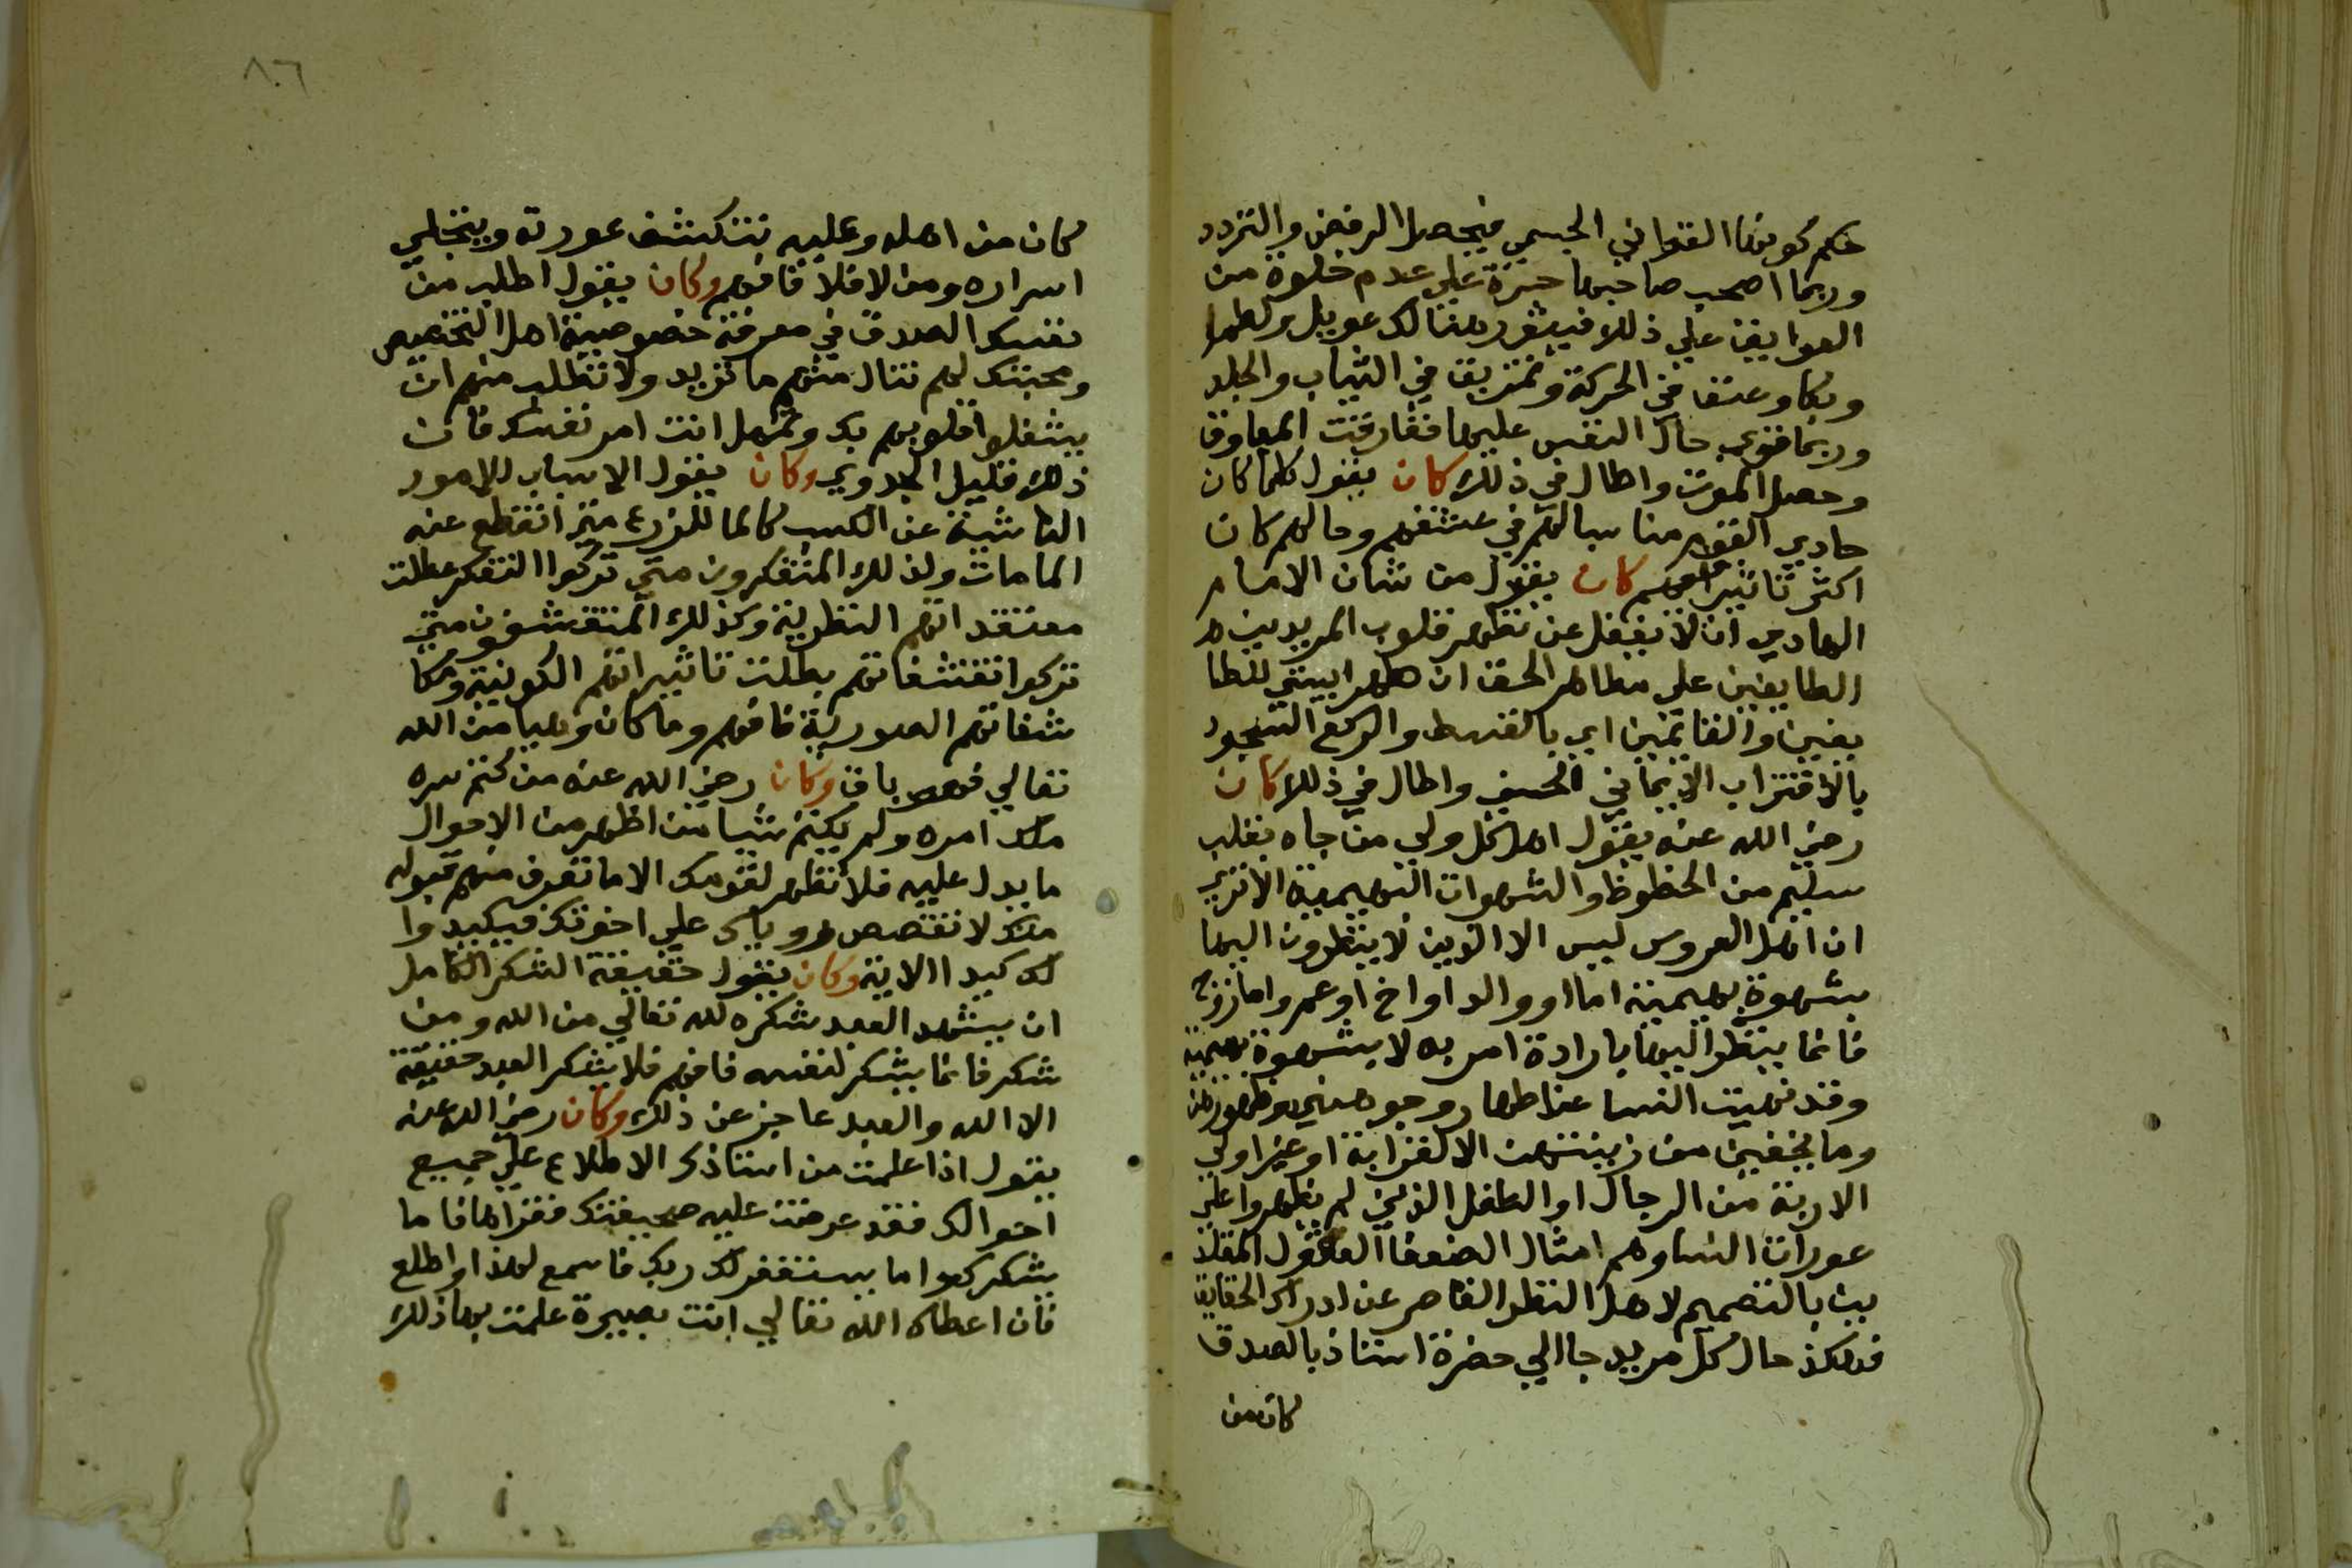 حكم كونها القواني الجسمي فيحصل الرفض والتردد
وربما اصحب صاحبها حسرة علي عدم خلوه من
العوايق علي ذلك فيثور هنالك عويل ولطما
وبكا وعنفا في الحركة وتمزيق في الثياب والجلد
وربما قوي حال النفس عليها ففارقت المعاوق
وحصل الموت واطال في ذلك كان يقول كلما كان
حادي القوم مناسبا لهم في عشقهم وحالهم كان
اكثر تاثيرا فيهم كان يقول من شان الامام
الهادي ان لا يغفل عن تطهر قلوب المريدين
الطايفين علي مظاهر الحق ان طهرا بيتي للطا
يفين والقايمين اي بالقسط والركع السجود
بالاقتراب الايماني الحسي واطال في ذلك كان
رضي الله عنه يقول اهل كل ولي من جاه بقلب
سليم من الحظوظ والشهوات البهيمية الا تري
ان اهل العروس ليس الا الذين لا ينظرون اليها
بشهوة بهيمية اما اوو الد او اخ او عم واما زوج
فانما ينظر اليها بارادة امر به لا بشهوة بهيمية
وقد نهيت النسا عن اظهار وجوههن وظهورهن
وما يخفين من زينتهن الا لقرابة او غير اولي
الاربة من الرجال او الطفل الذين لم يظهروا علي
عورات النسا وهم امثال الضعفا العقول المقلد
ين بالتصميم لاهل النظر القاصر عن ادراك الحقايق
فهكذ حال كل مريد جا الي حضرة استاذ بالصدق
كان من
٨٦
كان من اهله وعليه تنكشف عورته وينجلي
اسراره ومن لا فلا فافهم وكان يقول اطلب من
نفسك الصدق في معرفة خصوصية اهل التخصيص
ومحبتك لهم تنال منهم ما تريد ولا تطلب منهم ان
يشغلوا قلوبهم بك وتهمل انت امر نفسك فان
ذلك قليل الجدوي وكان يقول الاسباب للامور
الناشية عن الكسب كالما للزرع متي انقطع عنه
الما مات ولذلك المتفكرون متي تركوا التفكر عطلت
معتقداتهم النظرية وكذلك المتقشفون متي
تركوا تقشفاتهم بطلت تاثيراتهم الكونية ومكا
شفاتهم الصورية فافهم وما كان وهبا من الله
تعالي فهو باق وكان رضي الله عنه من كتم سره
ملك امره ولم يكتم شيا من اظهر من الاحوال
ما يدل عليه فلا تظهر لقومك الا ما تعرف منهم قبوله
منك لا تقصص روياك علي اخوتك فيكيدوا
لك كيدا الاية وكان يقول حقيقة الشكر الكامل
ان يشهد العبد شكره لله تعالي من الله ومن
شكر فانما يشكر لنفسه فافهم فلا يشكر العبد حقيقة
الا الله والعبد عاجز عن ذلك وكان رضي الله عنه
يقول اذا علمت من استاذك الاطلاع علي جميع
احوالك فقد عرضت عليه صحيفتك فقراها فاما
يشكرك واما يستغفر لك ربك فاسمع لهذا واطلع
فان اعطاك الله تعالي انت بصيرة علمت بها ذلك